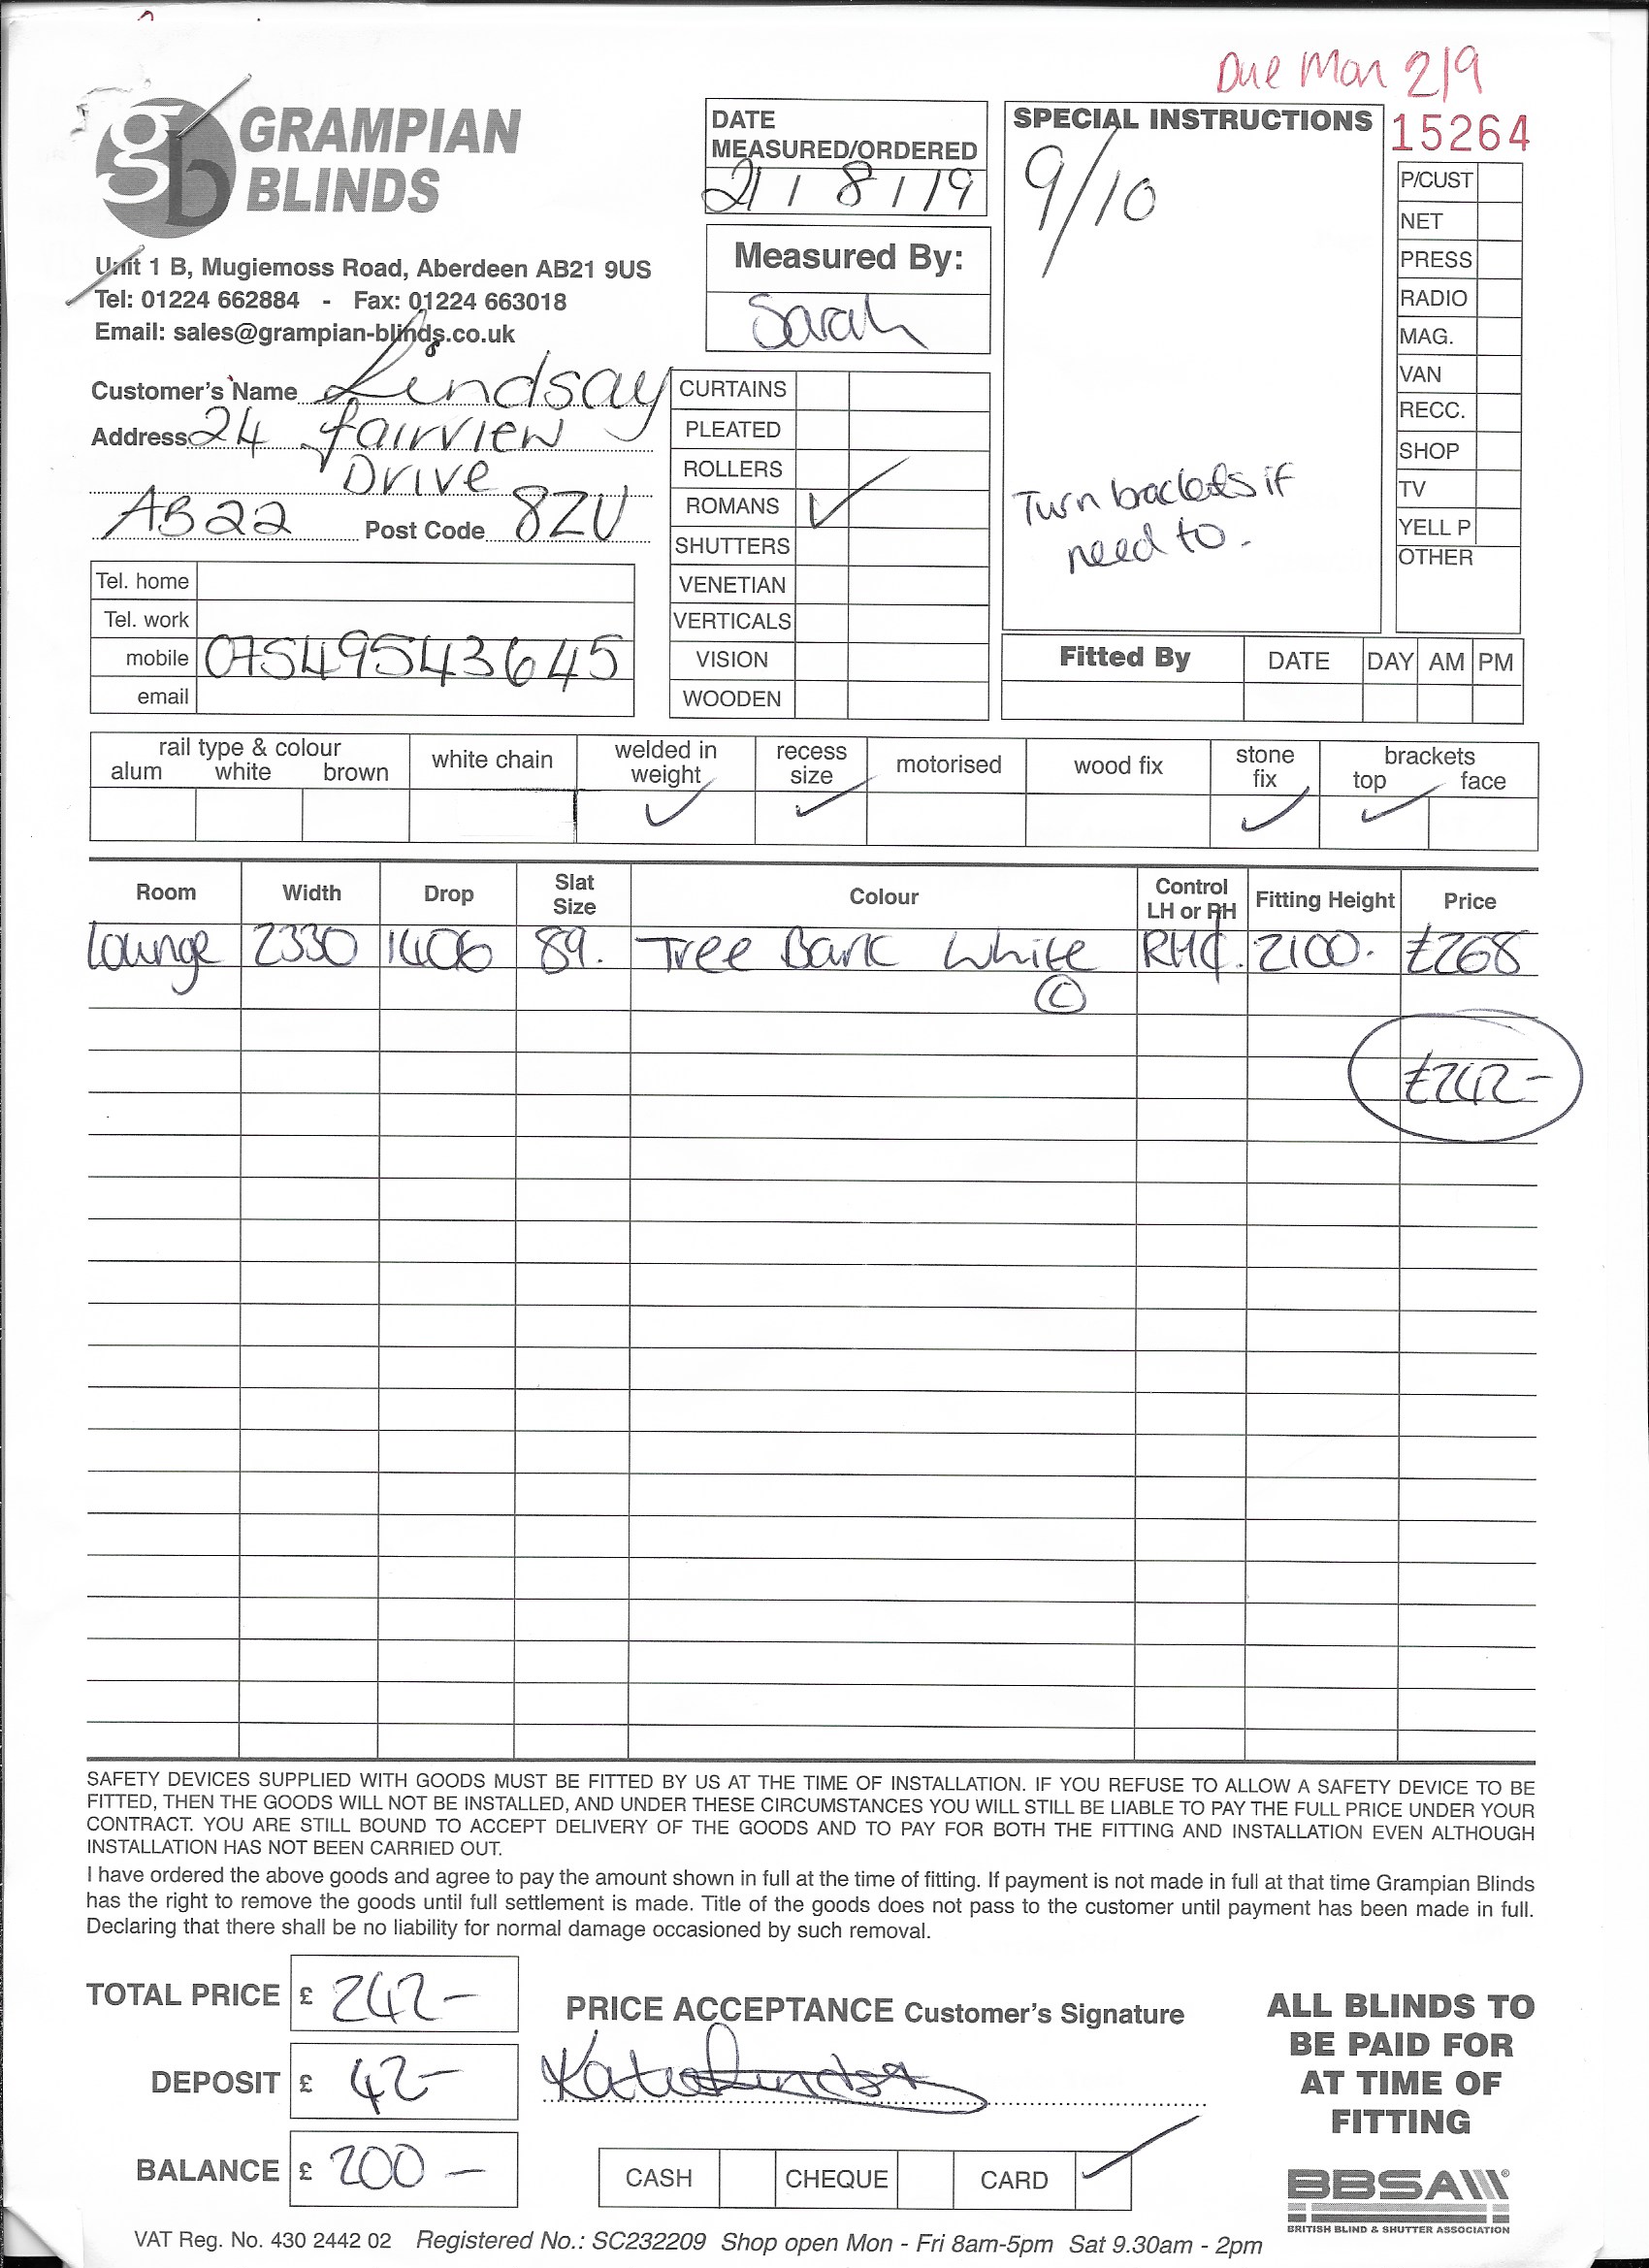 Due Mon 2/9
GRAMPIAN
BLINDS
Unit 1 B, Mugiemoss Road, Aberdeen AB21 9US
Tel: 01224 662884 - Fax: 01224 663018
Email: sales@grampian-blinds.co.uk
DATE
MEASURED/ORDERED
21 / 8 / 19
Measured By:
Sarah
SPECIAL INSTRUCTIONS
9/10
Turn brackets if
need to.
15264
P/CUST
NET
PRESS
RADIO
MAG.
VAN
RECC.
SHOP
TV
YELL P
OTHER
Customer's Name Lindsay
Address 24 fairview
Drive
AB22 Post Code 8ZU
Tel. home
Tel. work
mobile 07549543645
email
CURTAINS
PLEATED
ROLLERS
ROMANS ✓
SHUTTERS
VENETIAN
VERTICALS
VISION
WOODEN
Fitted By DATE DAY AM PM
rail type & colour
alum white brown
white chain
welded in
weight ✓
recess
size ✓
motorised
wood fix
stone
fix ✓
brackets
top ✓ face
Room Width Drop Slat Size Colour Control LH or RH Fitting Height Price
Lounge 2330 1406 89. Tree Bark White RHC. 2100. £268
©
£242-
SAFETY DEVICES SUPPLIED WITH GOODS MUST BE FITTED BY US AT THE TIME OF INSTALLATION. IF YOU REFUSE TO ALLOW A SAFETY DEVICE TO BE
FITTED, THEN THE GOODS WILL NOT BE INSTALLED, AND UNDER THESE CIRCUMSTANCES YOU WILL STILL BE LIABLE TO PAY THE FULL PRICE UNDER YOUR
CONTRACT. YOU ARE STILL BOUND TO ACCEPT DELIVERY OF THE GOODS AND TO PAY FOR BOTH THE FITTING AND INSTALLATION EVEN ALTHOUGH
INSTALLATION HAS NOT BEEN CARRIED OUT.
I have ordered the above goods and agree to pay the amount shown in full at the time of fitting. If payment is not made in full at that time Grampian Blinds
has the right to remove the goods until full settlement is made. Title of the goods does not pass to the customer until payment has been made in full.
Declaring that there shall be no liability for normal damage occasioned by such removal.
TOTAL PRICE £ 242-
DEPOSIT £ 42-
BALANCE £ 200-
PRICE ACCEPTANCE Customer's Signature
CASH CHEQUE CARD ✓
ALL BLINDS TO
BE PAID FOR
AT TIME OF
FITTING
BBSA
BRITISH BLIND & SHUTTER ASSOCIATION
VAT Reg. No. 430 2442 02 Registered No.: SC232209 Shop open Mon - Fri 8am-5pm Sat 9.30am - 2pm